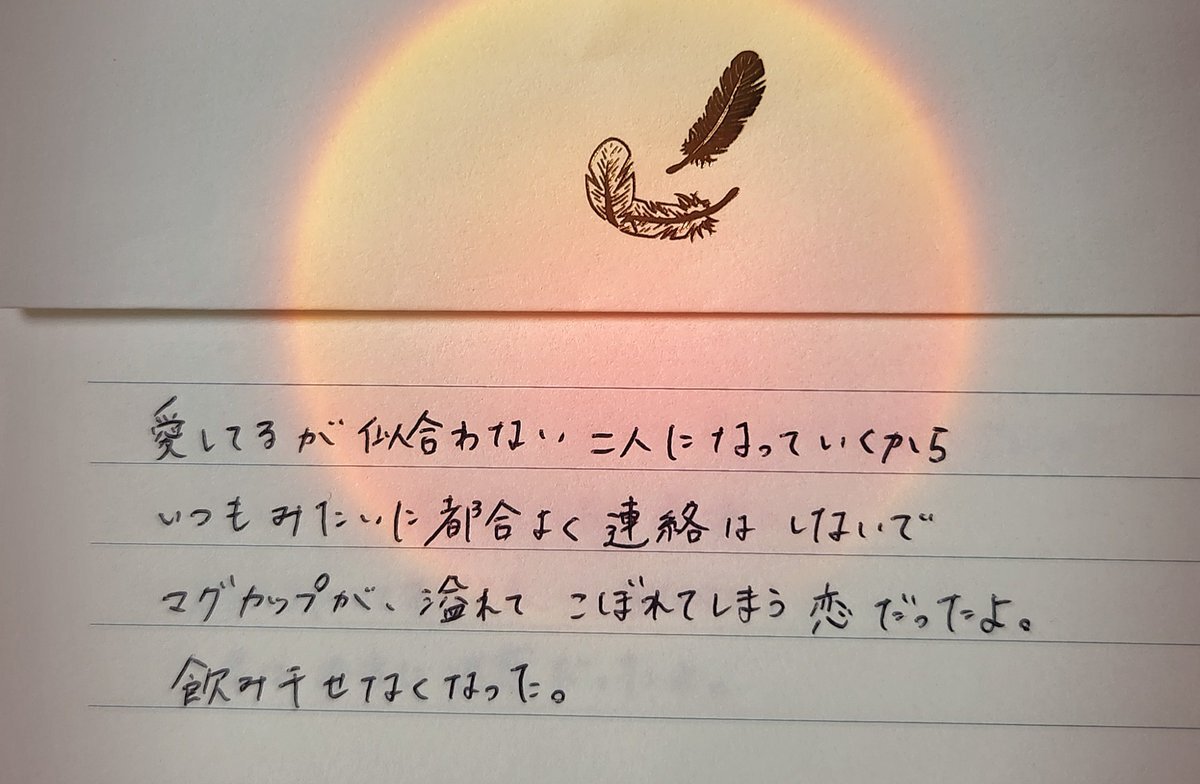 愛してるが似合わない二人になっていくから
いつもみたいに都合よく連絡はしないで
マグカップが、溢れてこぼれてしまう恋だったよ。
飲み干せなくなった。